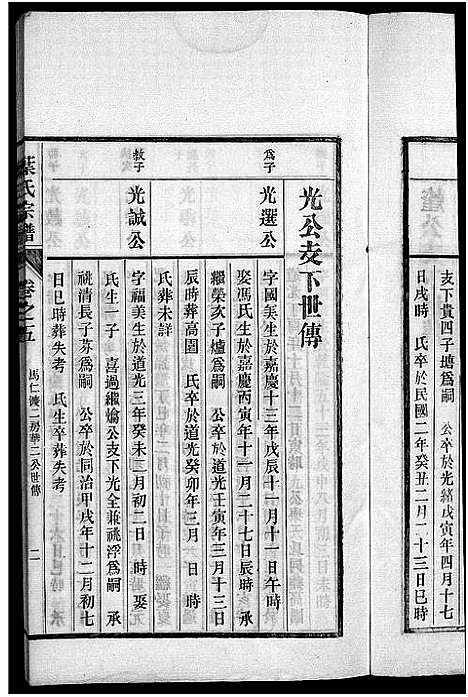 支下貴四子塘爲嗣　公卒於光緒戊寅年四月十七
日戌時　氏卒於民國二年癸丑二月二十三日巳時
光公支下世傳
爲子
光選公
字國美生於嘉慶十三年戊辰十一月十一日午時
娶馮氏生於嘉慶丙寅年十一月二十七日辰時　承
繼榮亥子爐爲嗣　公卒於道光壬寅年三月十三日
辰時葬高園　氏卒於道光癸卯年三月　日　時
氏葬未詳
教子
光誠公
字福美生於道光三年癸未三月初二日時　娶
氏生一子　喜過繼爚公支下光全兼祧浮爲嗣　承
祧清長子芬爲嗣　公卒於同治甲戌年十二月初七
日巳時葬失考　氏生卒葬失考
葉氏宗譜
卷之五
馬仁渡二房華二公世傳
二